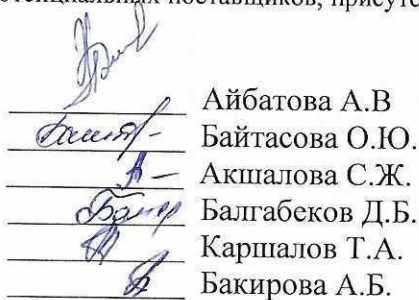 потенциальных поставщиков, присутс
Айбатова А.В
Байтасова О.Ю.
Акшалова С.Ж.
Балгабеков Д.Б.
Каршалов Т.А.
Бакирова А.Б.